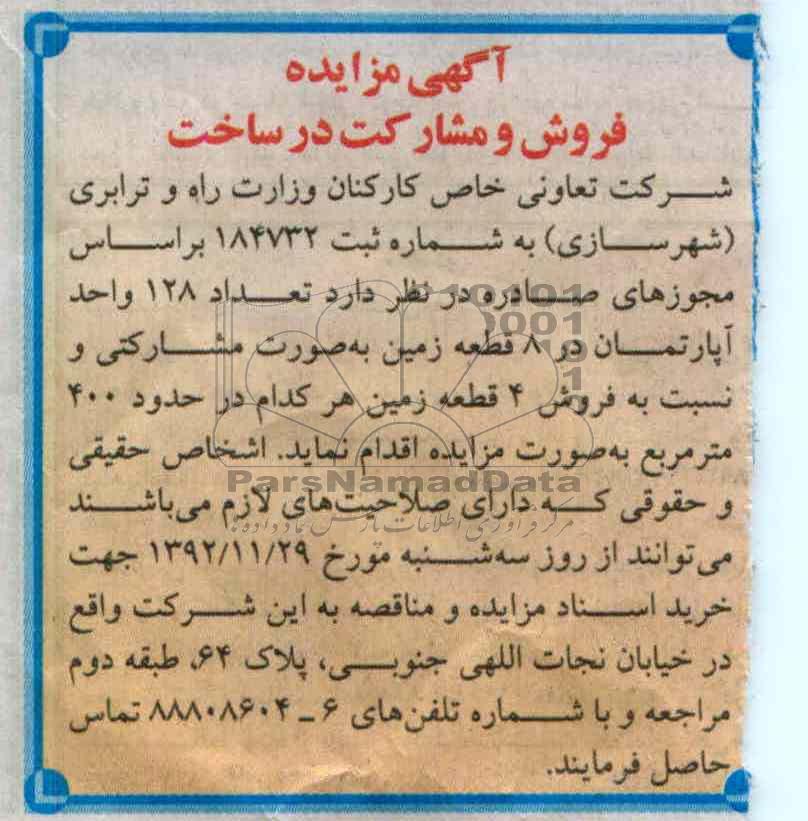 آگهی مزایده
فروش و مشارکت در ساخت
شرکت تعاونی خاص کارکنان وزارت راه و ترابری
(شهرسازی) به شماره ثبت ۱۸۴۷۳۲ براساس
مجوزهای صادره در نظر دارد تعداد ۱۲۸ واحد
آپارتمان در ۸ قطعه زمین به‌صورت مشارکتی و
نسبت به فروش ۴ قطعه زمین هر کدام در حدود ۴۰۰
مترمربع به‌صورت مزایده اقدام نماید. اشخاص حقیقی
و حقوقی که دارای صلاحیت‌های لازم می‌باشند
می‌توانند از روز سه‌شنبه مورخ ۱۳۹۲/۱۱/۲۹ جهت
خرید اسناد مزایده و مناقصه به این شرکت واقع
در خیابان نجات اللهی جنوبی، پلاک ۶۴، طبقه دوم
مراجعه و با شماره تلفن‌های ۶ ـ ۸۸۸۰۸۶۰۴ تماس
حاصل فرمایند.
ParsNamadData